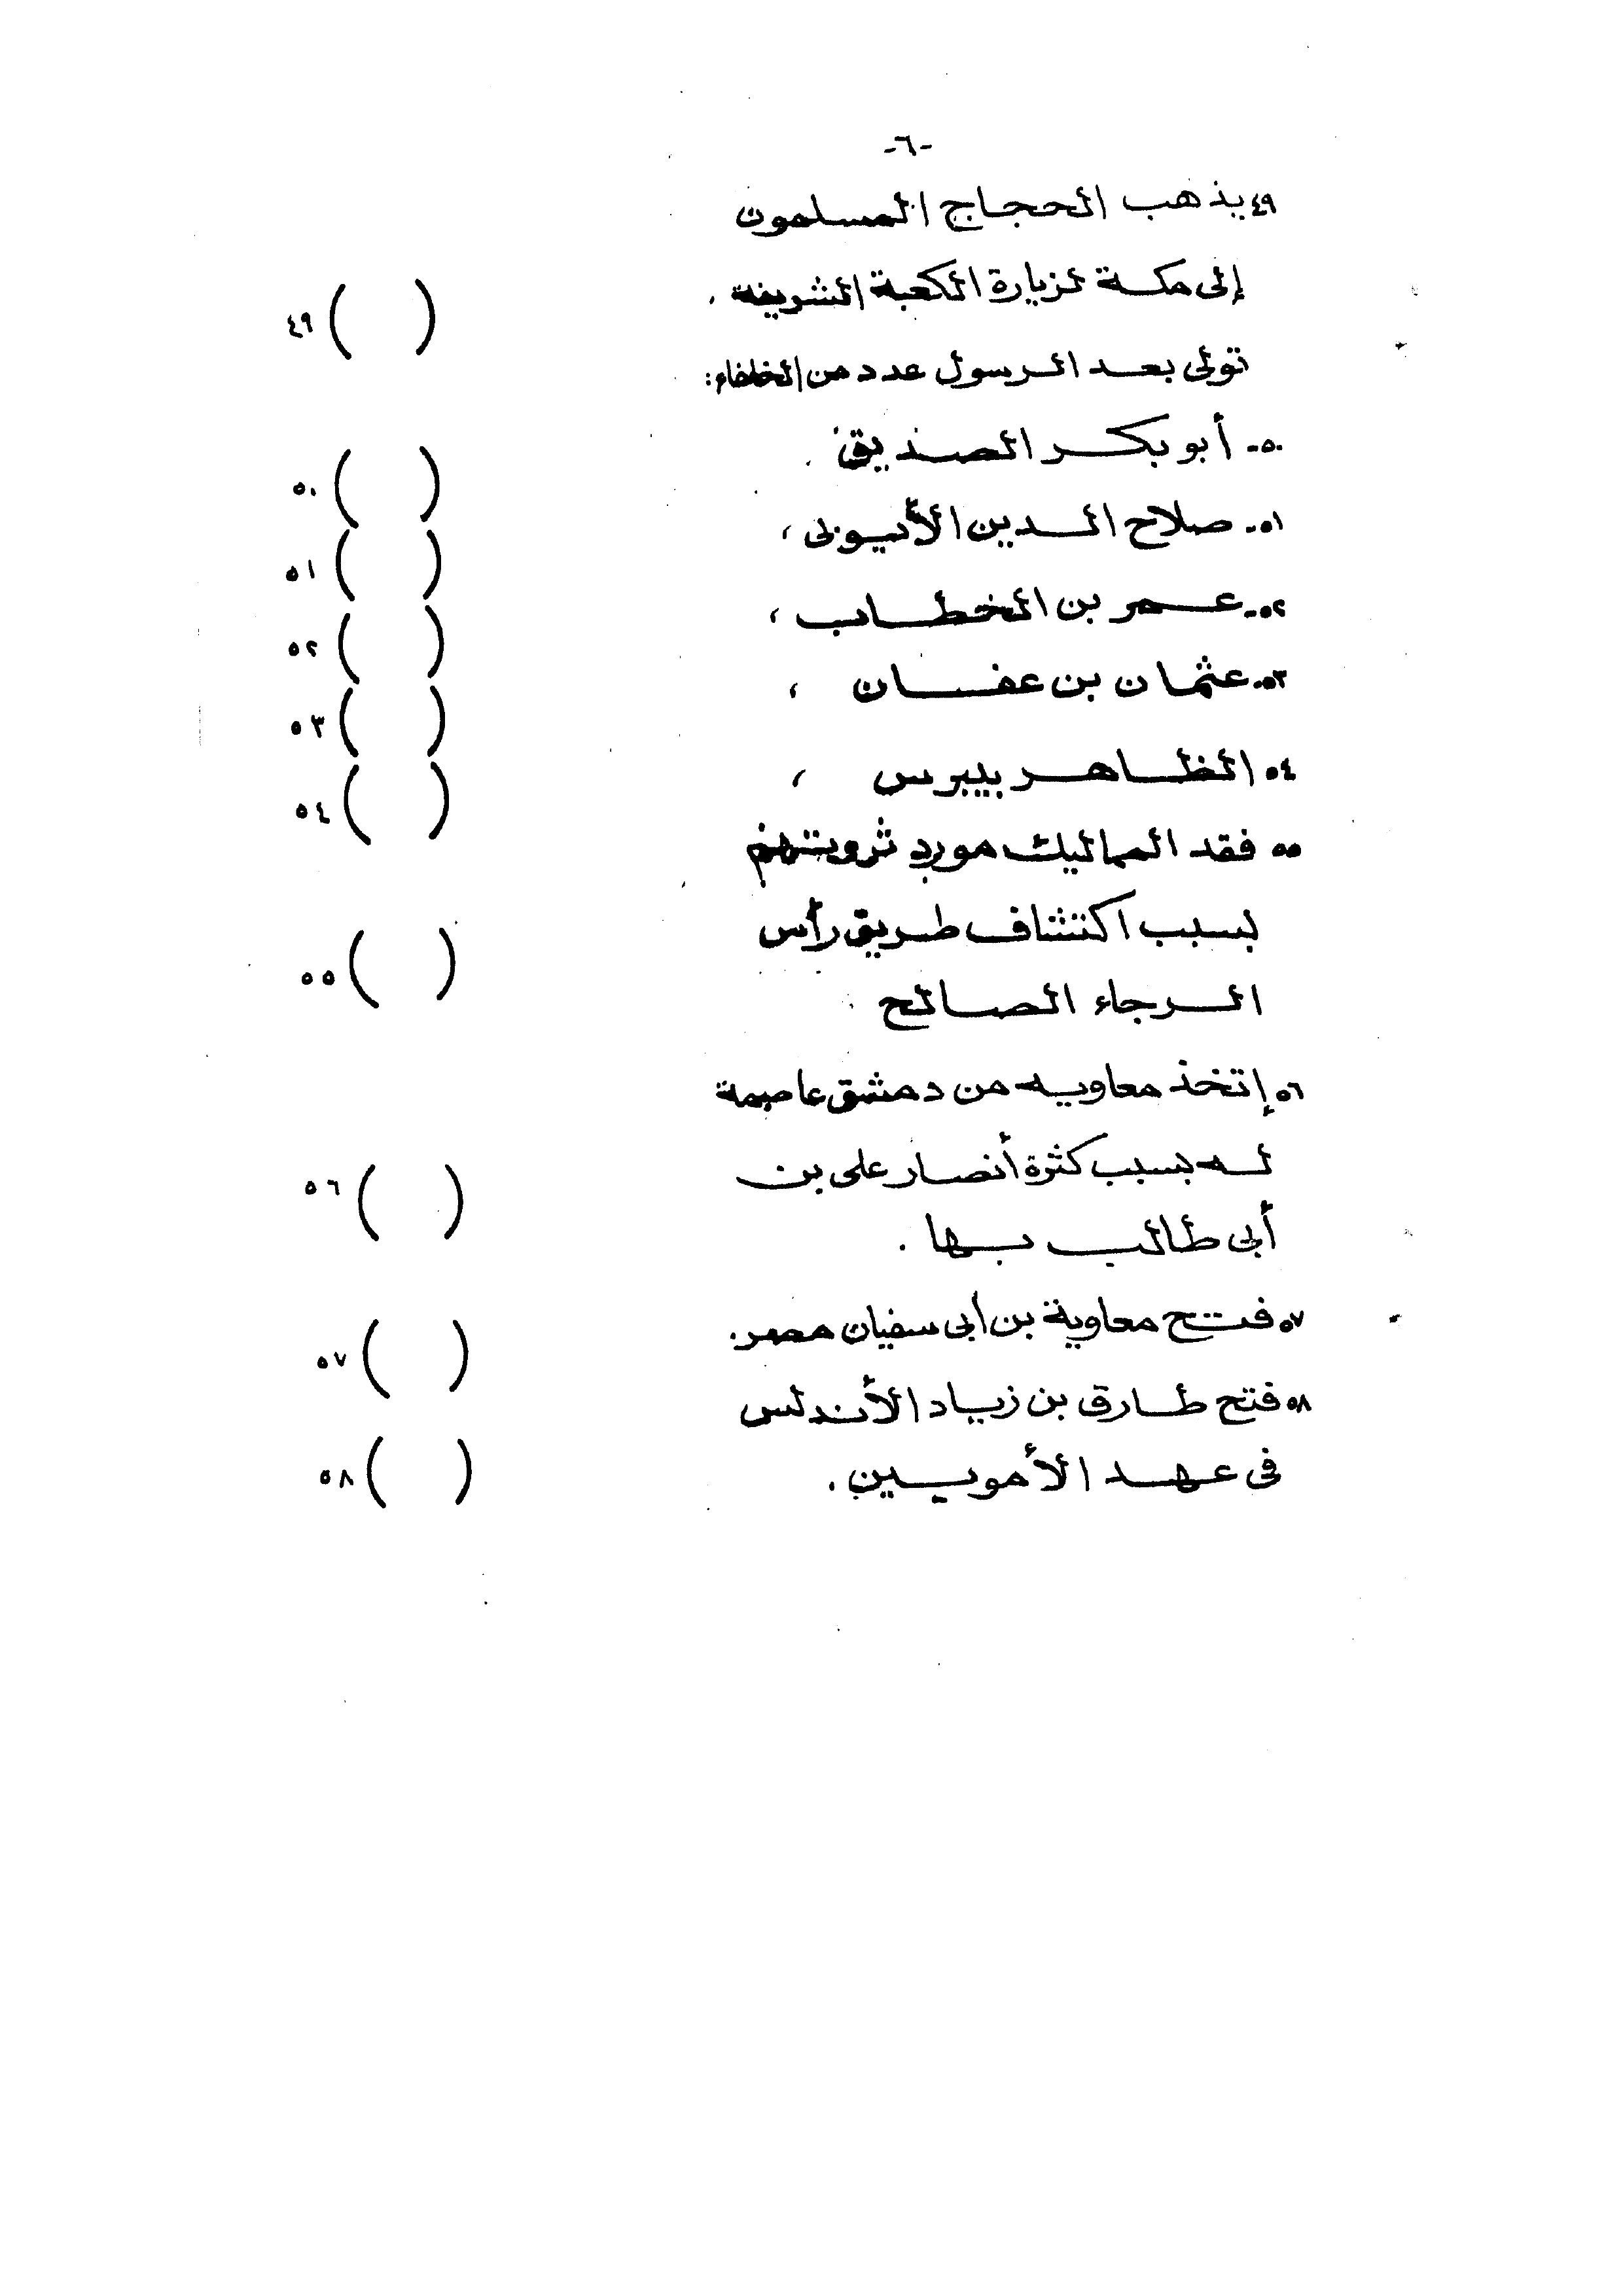 -٦-
٤٩ يذهب الحجاج المسلمون
إلى مكة لزيارة الكعبة الشريفة .
٤٩ (    )
تولى بعد الرسول عدد من الخلفاء :
٥٠- أبو بكر الصديق .
٥٠ (    )
٥١- صلاح الدين الأيوبى ،
٥١ (    )
٥٢- عمر بن الخطاب ،
٥٢ (    )
٥٣- عثمان بن عفان ،
٥٣ (    )
٥٤ الظاهر بيبرس ،
٥٤ (    )
٥٥ فقد المماليك مورد ثروتهم
بسبب اكتشاف طريق رأس
٥٥ (    )
الرجاء الصالح .
٥٦ إتخذ معاويه من دمشق عاصمة
له بسبب كثرة أنصار على بن
٥٦ (    )
أبى طالب بها .
٥٧ فتح معاوية بن أبى سفيان مصر .
٥٧ (    )
٥٨ فتح طارق بن زياد الأندلس
فى عهد الأمويين .
٥٨ (    )